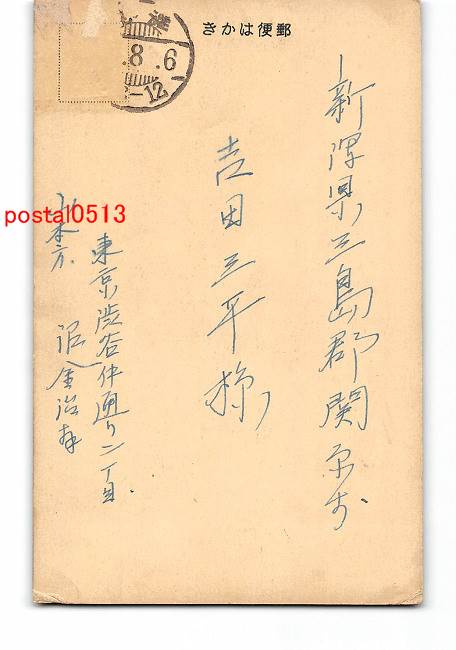 郵便はかき
8.6
-12
新潟県三島郡関原町
吉田三平様
東京渋谷仲通り二丁目
本方
治
postal0513